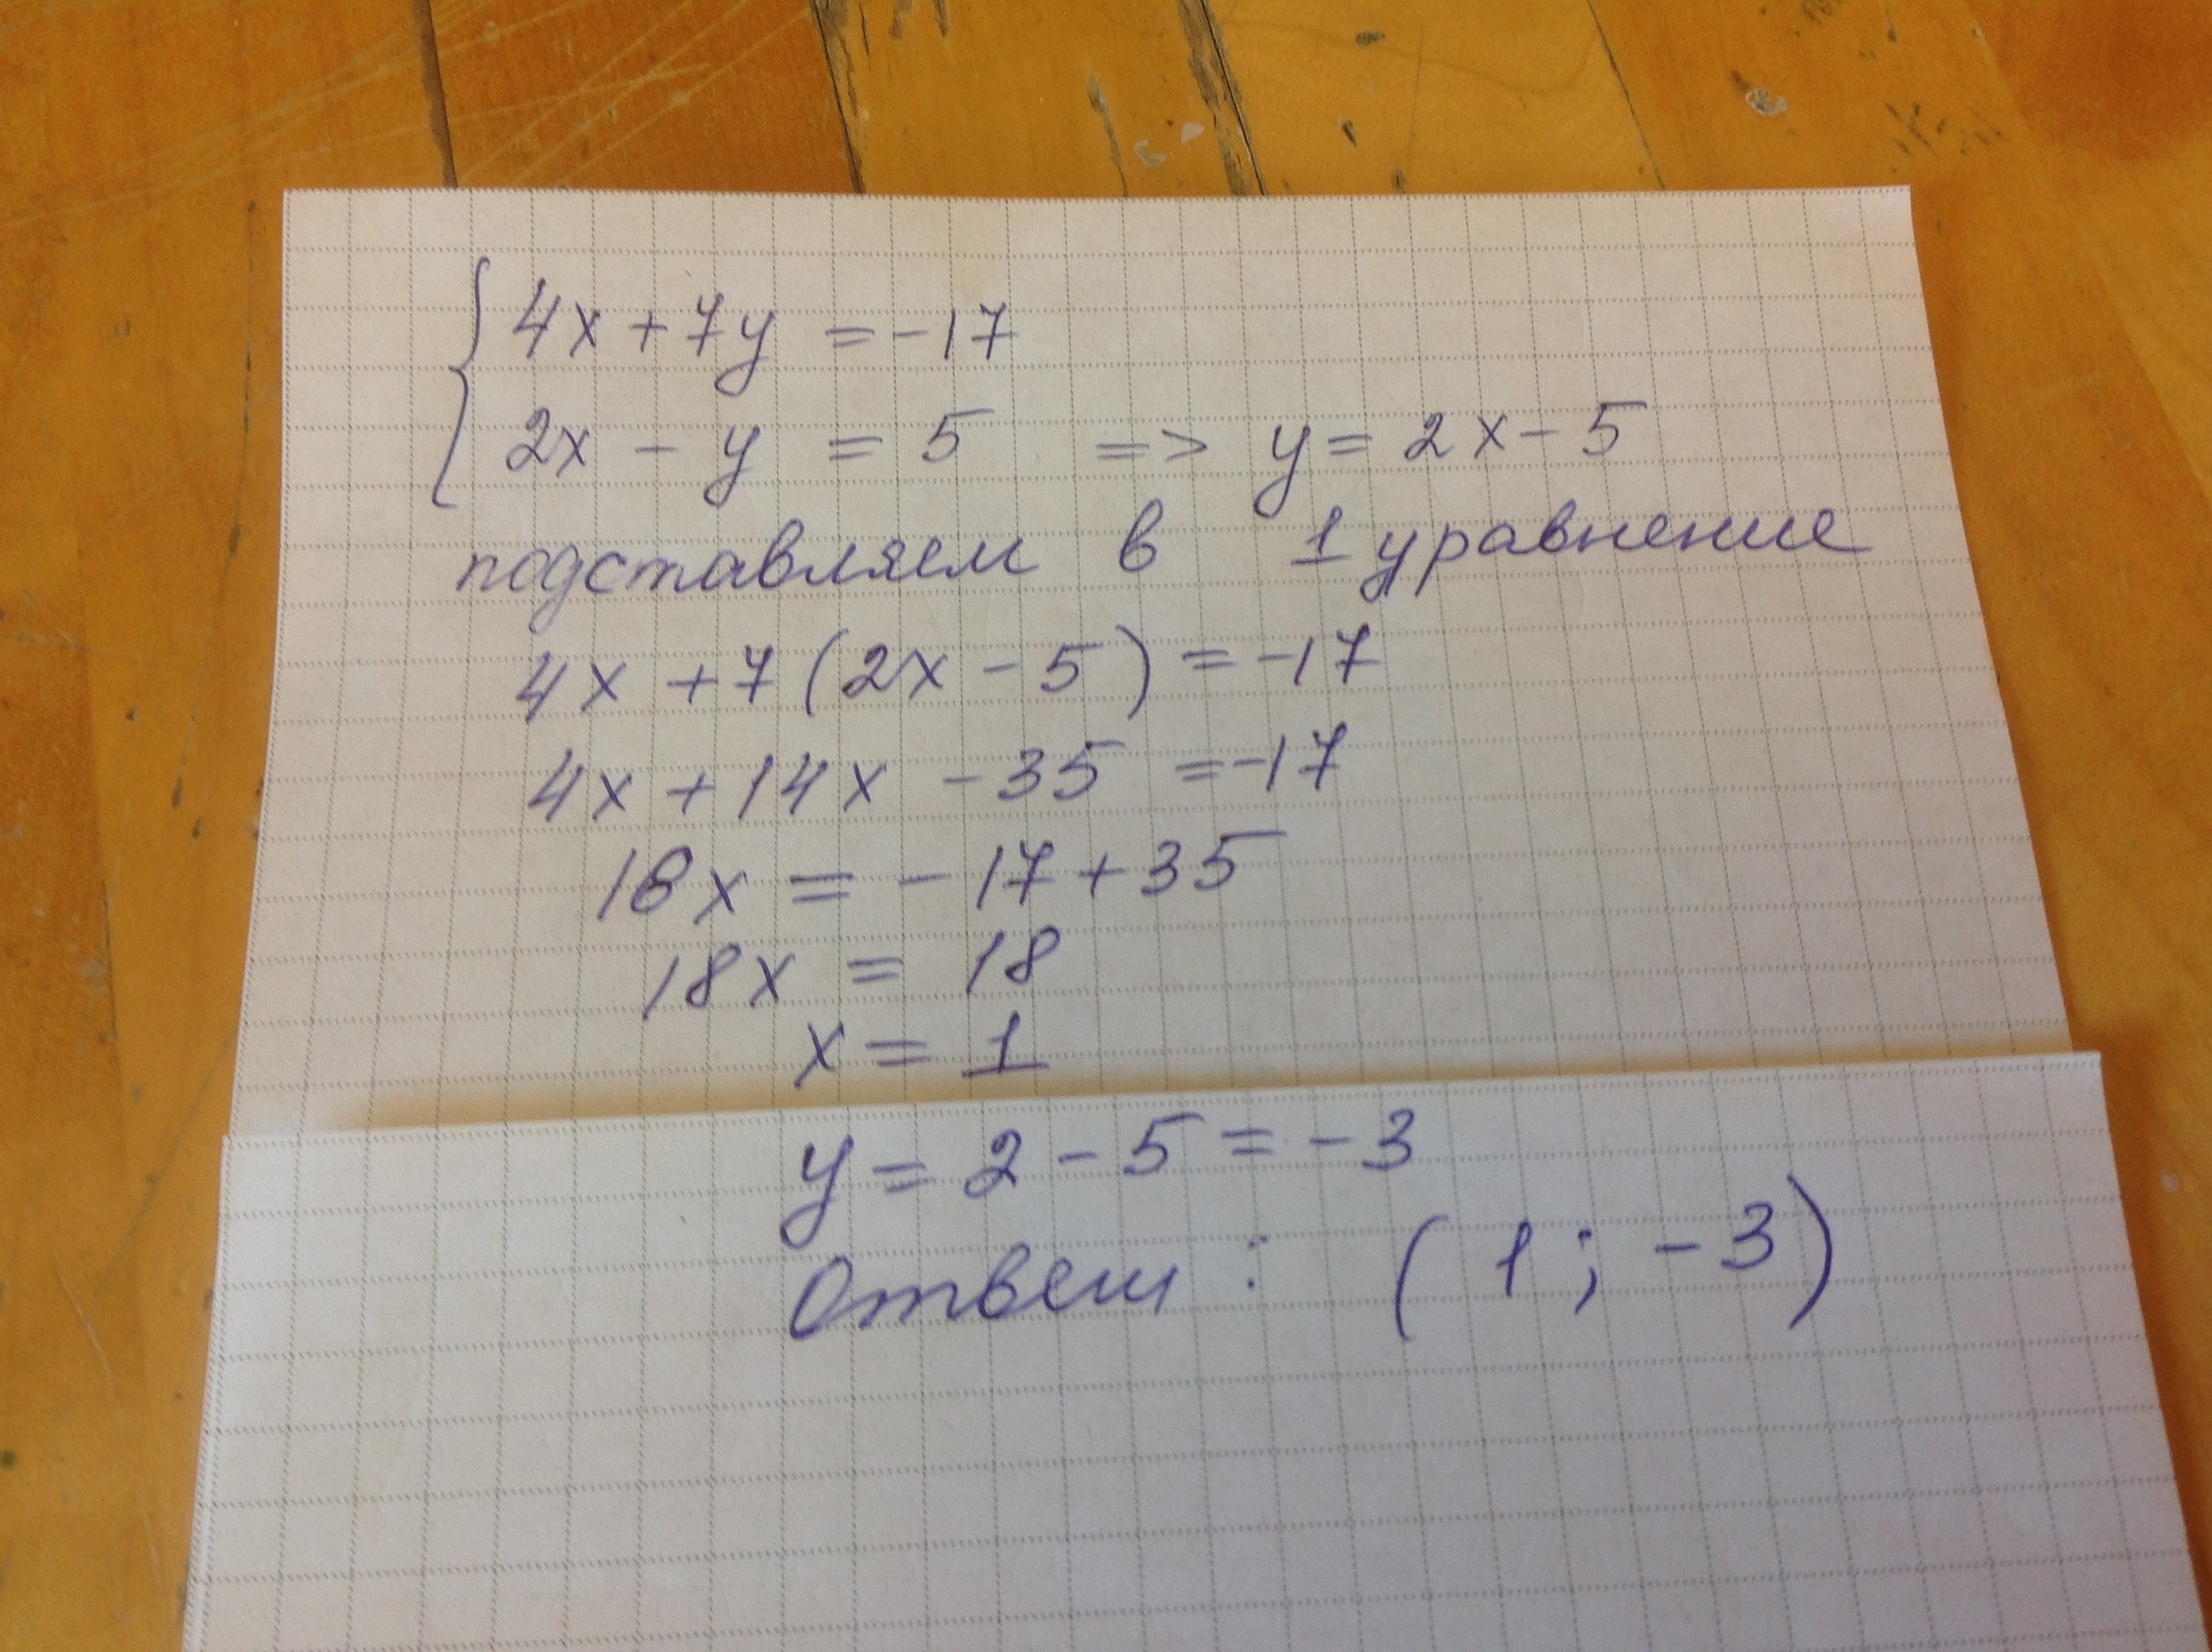 4x + 7y = -17
2x - y = 5 => y = 2x - 5
подставляем в 1 уравнение
4x + 7(2x - 5) = -17
4x + 14x - 35 = -17
18x = -17 + 35
18x = 18
x = 1
y = 2 - 5 = -3
Ответ : (1; -3)